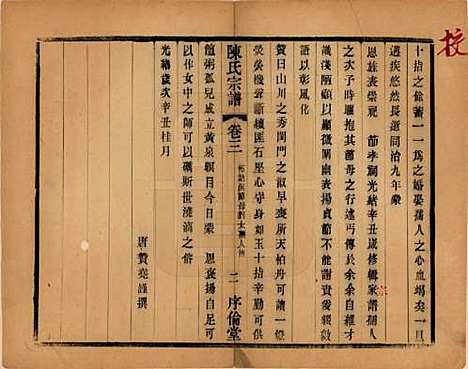 校
十指之餘蓄一一為之婚娶孺人之心血竭矣一旦
遘疾悠然長逝同治九年蒙
恩旌表崇祀 節孝祠光緒辛丑歲修輯家譜孺人
之次子時耀抱其節母之行述丐傳於余余自維才
識淺陋顧以顯微闡幽表揚貞節不能無責爰綴數
語以彰風化
贊曰山川之秀閨門之淑早喪所天柏舟可讀一燈
熒熒機聲斷續匪石堅心守身如玉十指辛勤可供
陳氏宗譜
卷三
二 序倫堂
饘粥孤兒成立黃泉顯目今蒙 恩表揚自天可足
以作女中之師可以礪斯世澆漓之俗
光緒歲次辛丑桂月
唐贊堯謹撰